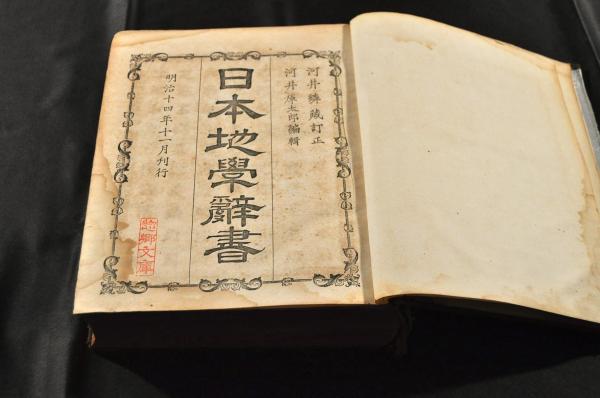 河井𤩍蔵訂正
河井庫太郎編輯
日本地學辭書
明治十四年十一月刊行
悠郷文庫